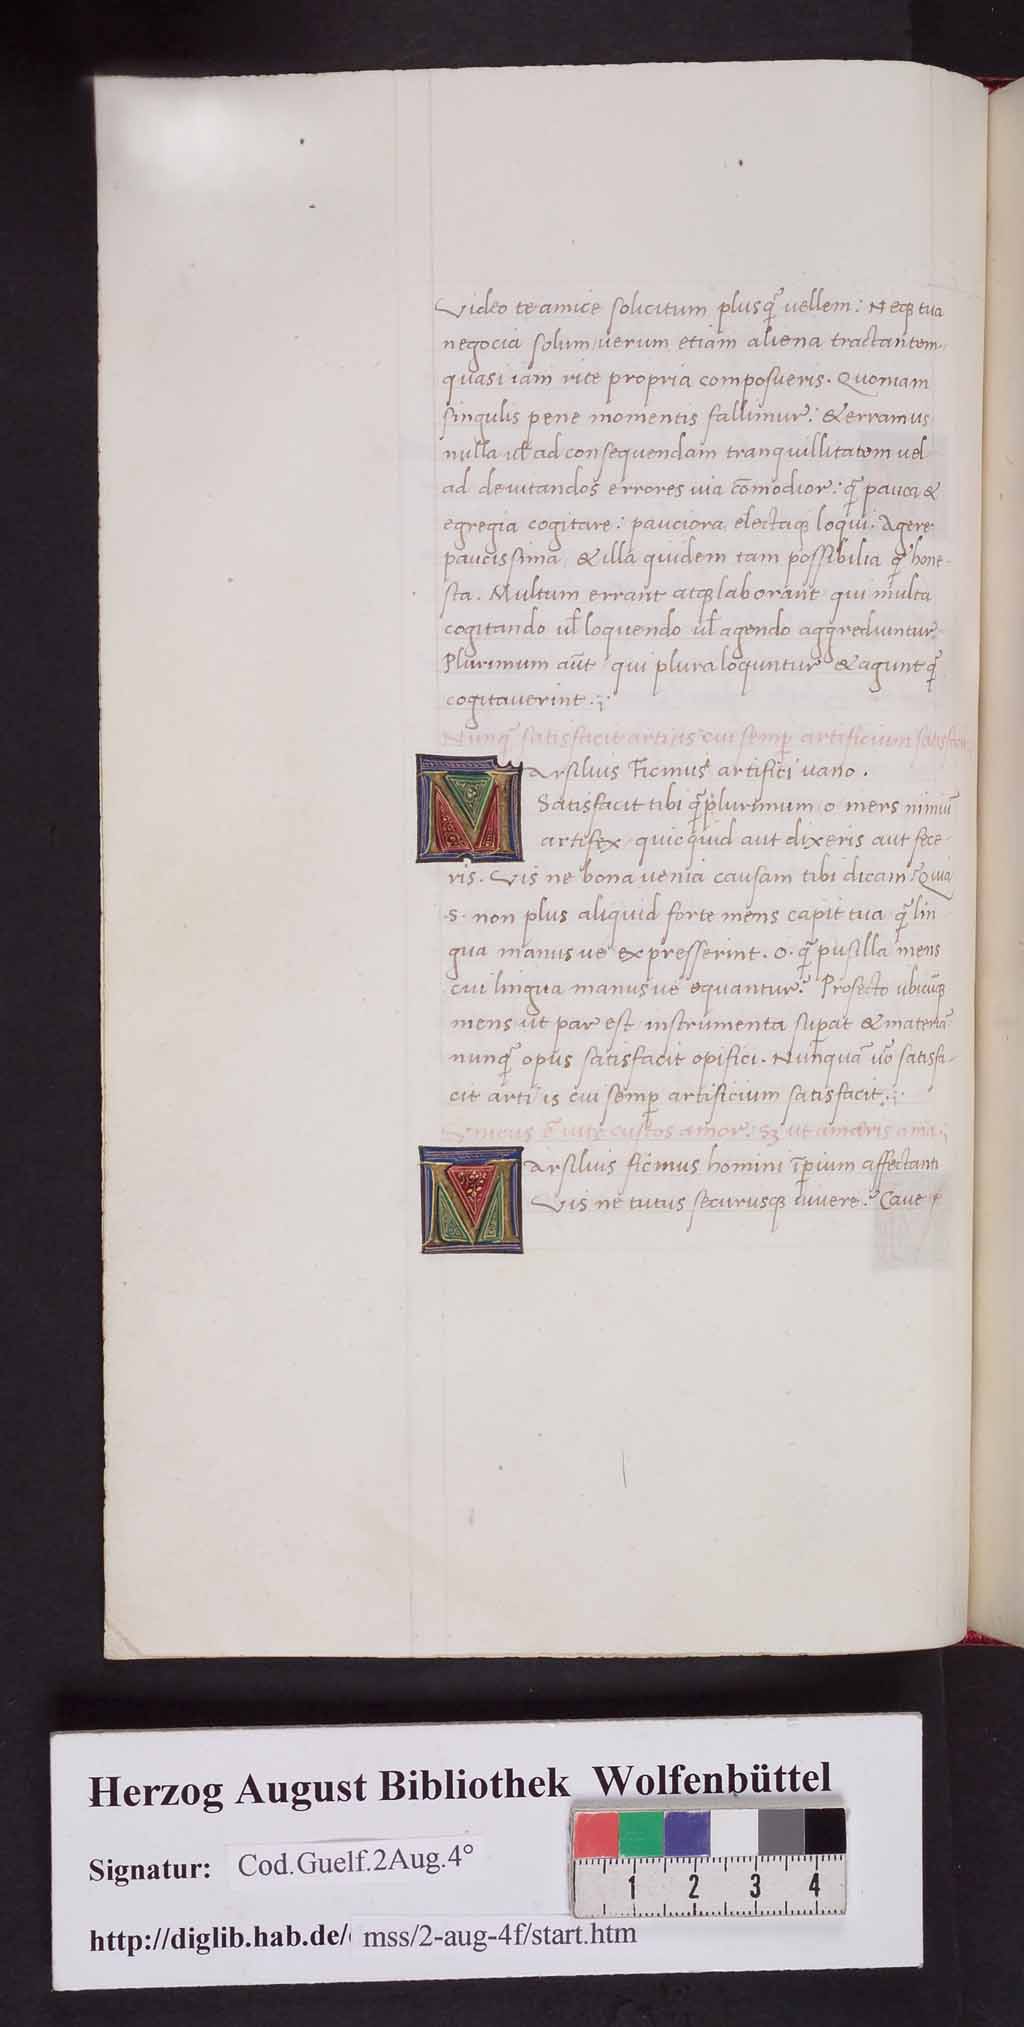 Video te amice solicitum plusq̃ vellem: Neq; tua
negocia solum verum etiam aliena tractantem.
quasi iam rite propria composueris. Quoniam
singulis pene momentis fallimur: & erramus
nulla ul̃ ad consequendam tranquillitatem vel
ad devitandos errores via cõmodior: q̃ pauca &
egregia cogitare: pauciora electaq; loqui. Agere
paucissima & illa quidem tam possibilia q̃ hone-
sta. Multum errant atq; laborant qui multa
cogitando ul̃ loquendo ul̃ agendo aggrediuntur.
Plurimum aũt qui plura loquntur & agunt q̃
cogitaverint.
Nunq̃ satisfacit arti is cui semp artificium satisfacit
Marsilius Ficinus artifici vano.
Satisfacit tibi q̃plurimum o iners nimiũ
artifex quicquid aut dixeris aut fece-
ris. Vis ne bona venia causam tibi dicam? Quia
.s. non plus aliquid forte mens capit tua q̃ lin
gua manus ve expresserint. O. q̃ pusilla mens
cui lingua manus ve equantur? Profecto ubicũq;
mens ut par est instrumenta supat & materiã
nunq̃ opus satisfacit opifici. Nunquã ṽo satisfa-
cit arti is cui semp artificium satisfacit.
Unicus ẽ vite custos amor: Sȝ ut ameris ama.
Marsilius ficinus homini ĩpium affectanti
Vis ne tutus securusq; vivere? Cave
Herzog August Bibliothek Wolfenbüttel
Signatur: Cod.Guelf.2Aug.4°
1 2 3 4
http://diglib.hab.de/ mss/2-aug-4f/start.htm